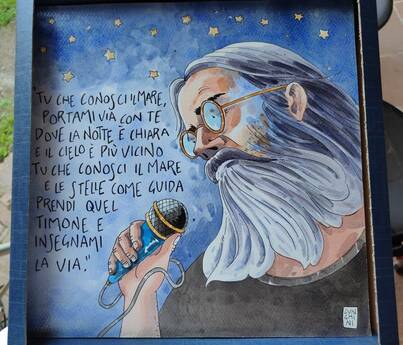 "TU CHE CONOSCI IL MARE,
PORTAMI VIA CON TE
DOVE LA NOTTE È CHIARA
E IL CIELO È PIÙ VICINO
TU CHE CONOSCI IL MARE
E LE STELLE COME GUIDA
PRENDI QUEL
TIMONE E
INSEGNAMI
LA VIA."